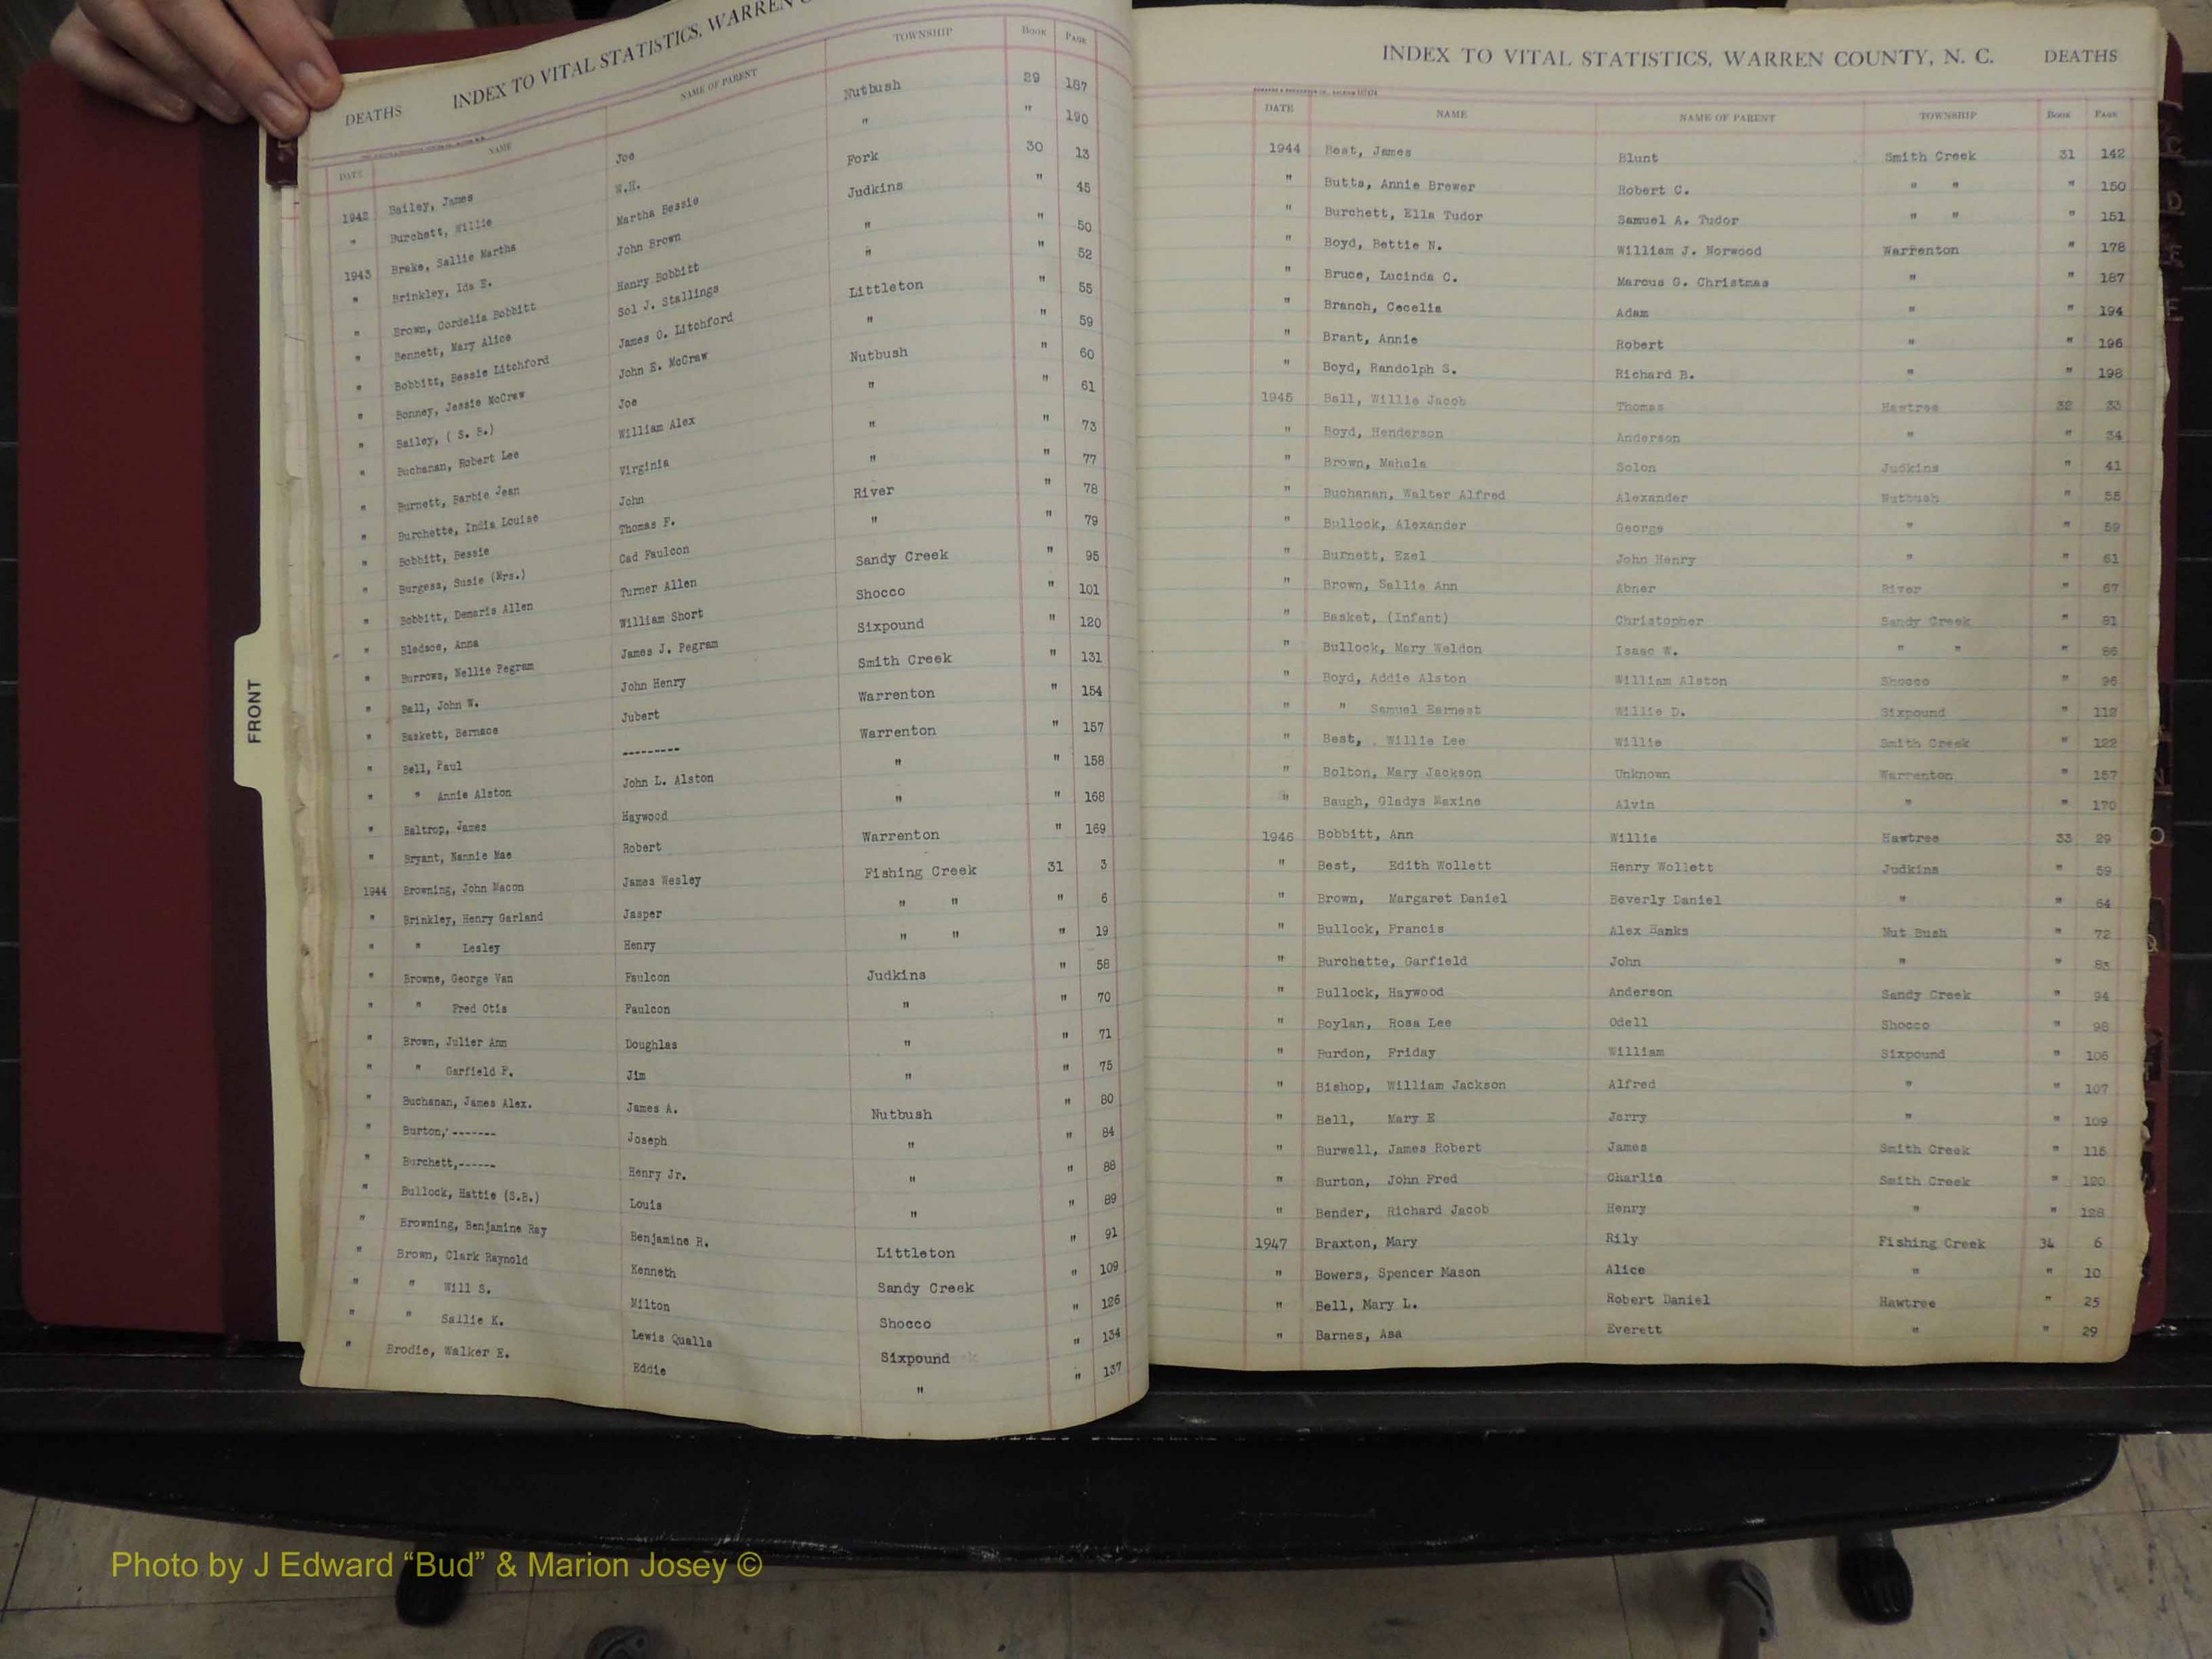 DEATHS INDEX TO VITAL STATISTICS, WARREN
DATE NAME NAME OF PARENT TOWNSHIP BOOK PAGE
1942 Bailey, James Joe Nutbush 29 187
" Burchett, Willie W.H. " " 190
1943 Brake, Sallie Martha Martha Bessie Fork 30 13
" Brinkley, Ida E. John Brown Judkins " 45
" Brown, Cordelia Bobbitt Henry Bobbitt " " 50
" Bennett, Mary Alice Sol J. Stallings " " 52
" Bobbitt, Bessie Litchford James O. Litchford Littleton " 55
" Bonney, Jessie McCraw John E. McGraw " " 59
" Bailey, ( S. B.) Joe Nutbush " 60
" Buchanan, Robert Lee William Alex " " 61
" Burnett, Barbie Jean Virginia " " 73
" Burchette, India Louise John " " 77
" Bobbitt, Bessie Thomas F. River " 78
" Burgess, Susie (Mrs.) Cad Faulcon " " 79
" Bobbitt, Demaris Allen Turner Allen Sandy Creek " 95
" Bledsoe, Anna William Short Shocco " 101
" Burrows, Nellie Pegram James J. Pegram Sixpound " 120
" Ball, John W. John Henry Smith Creek " 131
" Baskett, Bernace Jubert Warrenton " 154
" Bell, Paul --------- Warrenton " 157
" " Annie Alston John L. Alston " " 158
" Baltrop, James Haywood " " 168
" Bryant, Nannie Mae Robert Warrenton " 169
1944 Browning, John Macon James Wesley Fishing Creek 31 3
" Brinkley, Henry Garland Jasper " " " 6
" " Lesley Henry " " " 19
" Browne, George Van Faulcon Judkins " 58
" " Fred Otis Faulcon " " 70
" Brown, Julier Ann Doughlas " " 71
" " Garfield P. Jim " " 75
" Buchanan, James Alex. James A. Nutbush " 80
" Burton, ------- Joseph " " 84
" Burchett,------ Henry Jr. " " 88
" Bullock, Hattie (S.B.) Louis " " 89
" Browning, Benjamine Ray Benjamine R. Littleton " 91
" Brown, Clark Raynold Kenneth Sandy Creek " 109
" " Will S. Milton Shocco " 126
" " Sallie K. Lewis Qualls Sixpound " 134
" Brodie, Walker E. Eddie " " 137
FRONT
INDEX TO VITAL STATISTICS, WARREN COUNTY, N. C. DEATHS
DATE NAME NAME OF PARENT TOWNSHIP BOOK PAGE
1944 Best, James Blunt Smith Creek 31 142
" Butts, Annie Brewer Robert C. " " " 150
" Burchett, Ella Tudor Samuel A. Tudor " " " 151
" Boyd, Bettie N. William J. Norwood Warrenton " 178
" Bruce, Lucinda C. Marcus G. Christmas " " 187
" Branch, Cecelia Adam " " 194
" Brant, Annie Robert " " 196
" Boyd, Randolph S. Richard B. " " 198
1945 Ball, Willie Jacob Thomas Hawtree 32 33
" Boyd, Henderson Anderson " " 34
" Brown, Mahala Solon Judkins " 41
" Buchanan, Walter Alfred Alexander Nutbush " 55
" Bullock, Alexander George " " 59
" Burnett, Ezel John Henry " " 61
" Brown, Sallie Ann Abner River " 67
" Basket, (Infant) Christopher Sandy Creek " 81
" Bullock, Mary Weldon Isaac W. " " " 86
" Boyd, Addie Alston William Alston Shocco " 96
" " Samuel Earnest Willie D. Sixpound " 112
" Best, Willie Lee Willie Smith Creek " 122
" Bolton, Mary Jackson Unknown Warrenton " 157
" Baugh, Gladys Maxine Alvin " " 170
1946 Bobbitt, Ann Willie Hawtree 33 29
" Best, Edith Wollett Henry Wollett Judkins " 59
" Brown, Margaret Daniel Beverly Daniel " " 64
" Bullock, Francis Alex Hanks Nut Bush " 72
" Burchette, Garfield John " " 83
" Bullock, Haywood Anderson Sandy Creek " 94
" Boylan, Rosa Lee Odell Shocco " 98
" Burdon, Friday William Sixpound " 106
" Bishop, William Jackson Alfred " " 107
" Bell, Mary E Jerry " " 109
" Burwell, James Robert James Smith Creek " 115
" Burton, John Fred Charlie Smith Creek " 120
" Bender, Richard Jacob Henry " " 128
1947 Braxton, Mary Rily Fishing Creek 34 6
" Bowers, Spencer Mason Alice " " 10
" Bell, Mary L. Robert Daniel Hawtree " 25
" Barnes, Asa Everett " " 29
Photo by J Edward “Bud” & Marion Josey ©